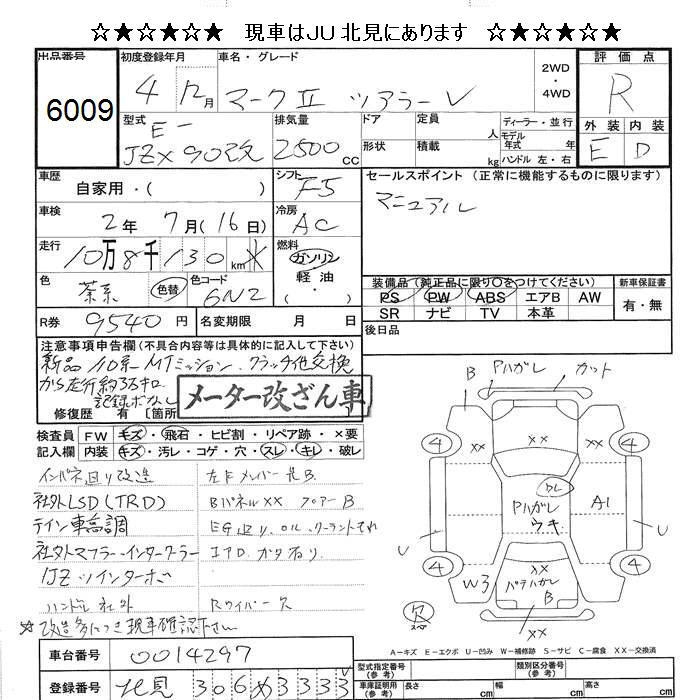 ☆★☆★☆★ 現車はJU北見にあります ☆★☆★☆★
出品番号 6009
初度登録年月 4 12月
車名・グレード マークⅡ ツアラーV
2WD・4WD
評価点 R
型式 E- JZX90改
排気量 2500cc
ドア 形状
定員 人 積載 kg
ディーラー・並行
モデル年式 年
ハンドル 左・右
外装 E
内装 D
車歴 自家用・( )
シフト F5
セールスポイント(正常に機能するものに限ります)
マニュアル
車検 2年 7月(16日)
冷房 AC
走行 10万8千130km
燃料 ガソリン 軽油・
色 茶系 色替
色コード 6N2
装備品(純正品に限り〇をつけてください)
PS PW ABS エアB AW
SR ナビ TV 本革
新車保証書 有・無
R券 9540円
名変期限 月 日
後日品
注意事項申告欄(不具合内容等は具体的に記入して下さい)
新品10系MTミッション、クラッチ他交換
から走行約35キロ
記録ボなし
修復歴 有 [箇所
メーター改ざん車
検査員記入欄
FW キズ・飛石・ヒビ割・リペア跡・×要
内装 キズ・汚レ・コゲ・穴・スレ・キレ・破レ
インパネ廻り改造
社外LSD(TRD)
テイン車高調
社外マフラー・インタークーラー
1JZツインターボ
ハンドル社外
☆改造多につき現車確認下さい
左Fメンバー先B
BパネルXX フロアーB
EG廻り、OIL、クーラントもれ
エアロ、ガタ有り
Rワイパー欠
B PハガレL カット
XX XX
4 4
DL
Pハガレ ウキ
A1
U U
4 4
W3
XX
パテハガレ B
XX
欠 スペア
A-キズ E-エクボ U-凹み W-補修跡 S-サビ C-腐食 XX-交換済
車台番号 0014297
登録番号 北見 306 め 3333
型式指定番号(参考)
類別区分番号(参考)
車庫証明用(参考) 長さ cm 幅 cm 高さ cm